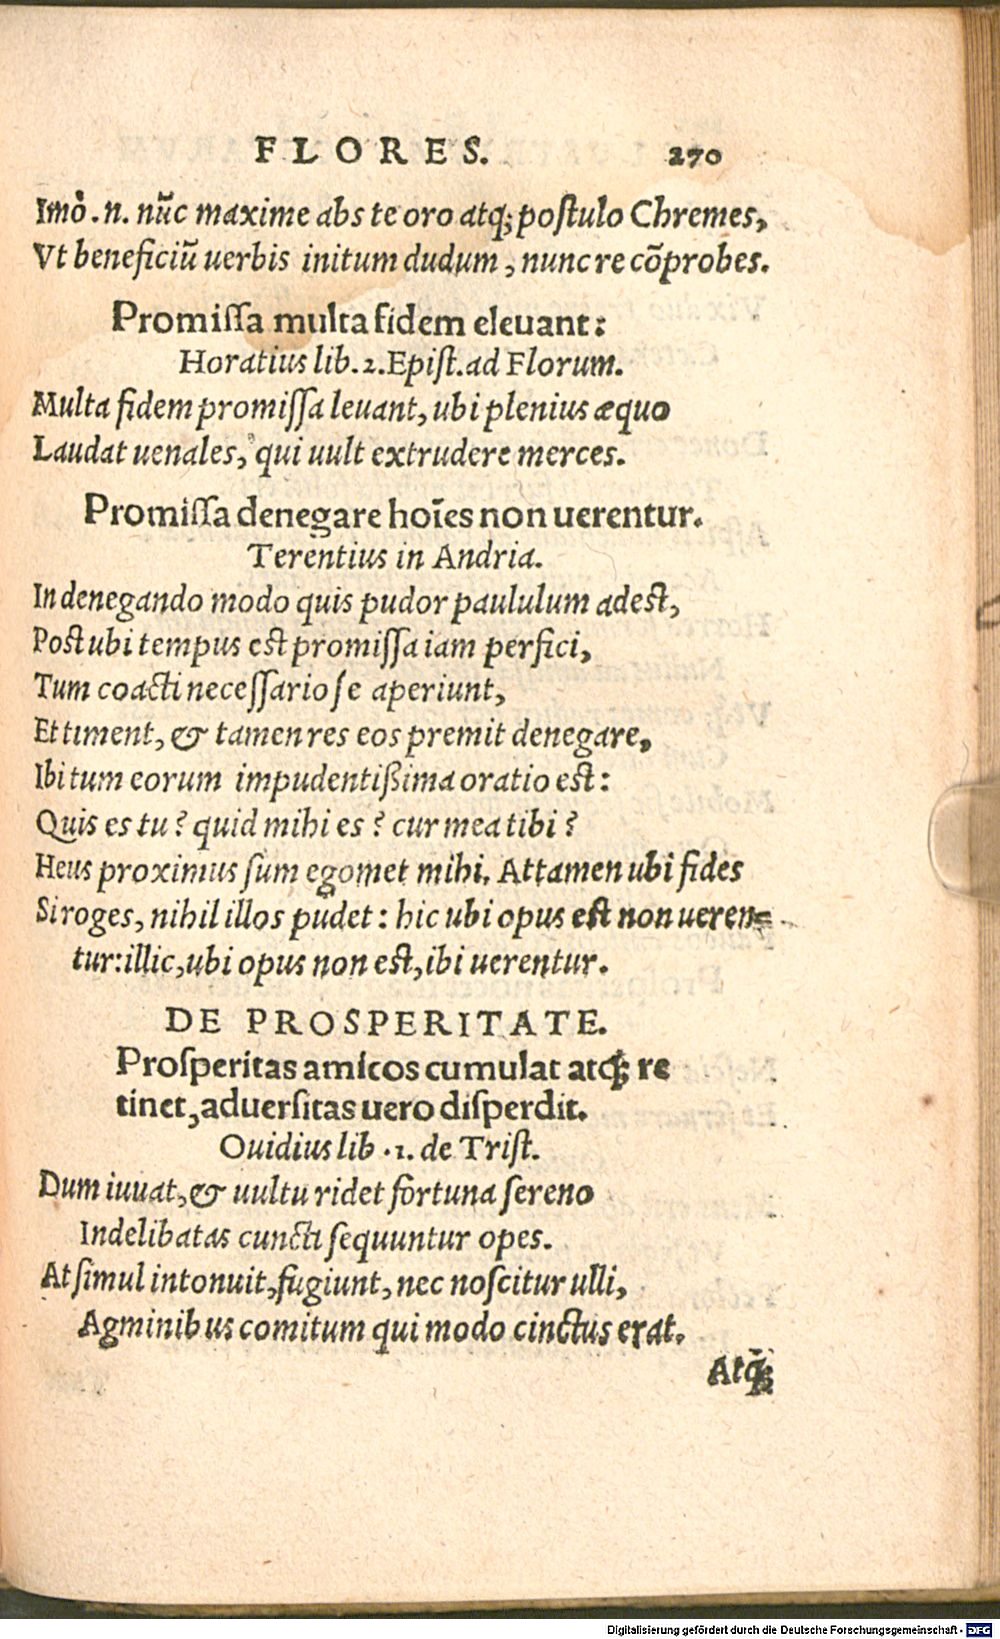 FLORES. 270
Imò .n. nũc maxime abs te oro atq; poſtulo Chremes,
Vt beneficiũ uerbis initum dudum, nunc re cõprobes.
Promiſſa multa fidem eleuant:
Horatius lib. 2. Epiſt. ad Florum.
Multa fidem promiſſa leuant, ubi plenius æquo
Laudat uenales, qui uult extrudere merces.
Promiſſa denegare hoĩes non uerentur.
Terentius in Andria.
In denegando modo quis pudor paululum adest,
Post ubi tempus est promiſſa iam perfici,
Tum coacti neceſſario ſe aperiunt,
Et timent, & tamen res eos premit denegare,
Ibi tum eorum impudentißima oratio est:
Quis es tu? quid mihi es? cur mea tibi?
Heus proximus ſum egomet mihi. Attamen ubi fides
Si roges, nihil illos pudet: hic ubi opus est non ueren=
tur: illic, ubi opus non est, ibi uerentur.
DE PROSPERITATE.
Proſperitas amicos cumulat atq; re
tinet, aduerſitas uero diſperdit.
Ouidius lib .1. de Triſt.
Dum iuuat, & uultu ridet fortuna ſereno
Indelibatas cuncti ſequuntur opes.
At ſimul intonuit, fugiunt, nec noſcitur ulli,
Agminibus comitum qui modo cinctus erat.
Atq;
Digitalisierung gefördert durch die Deutsche Forschungsgemeinschaft - DFG